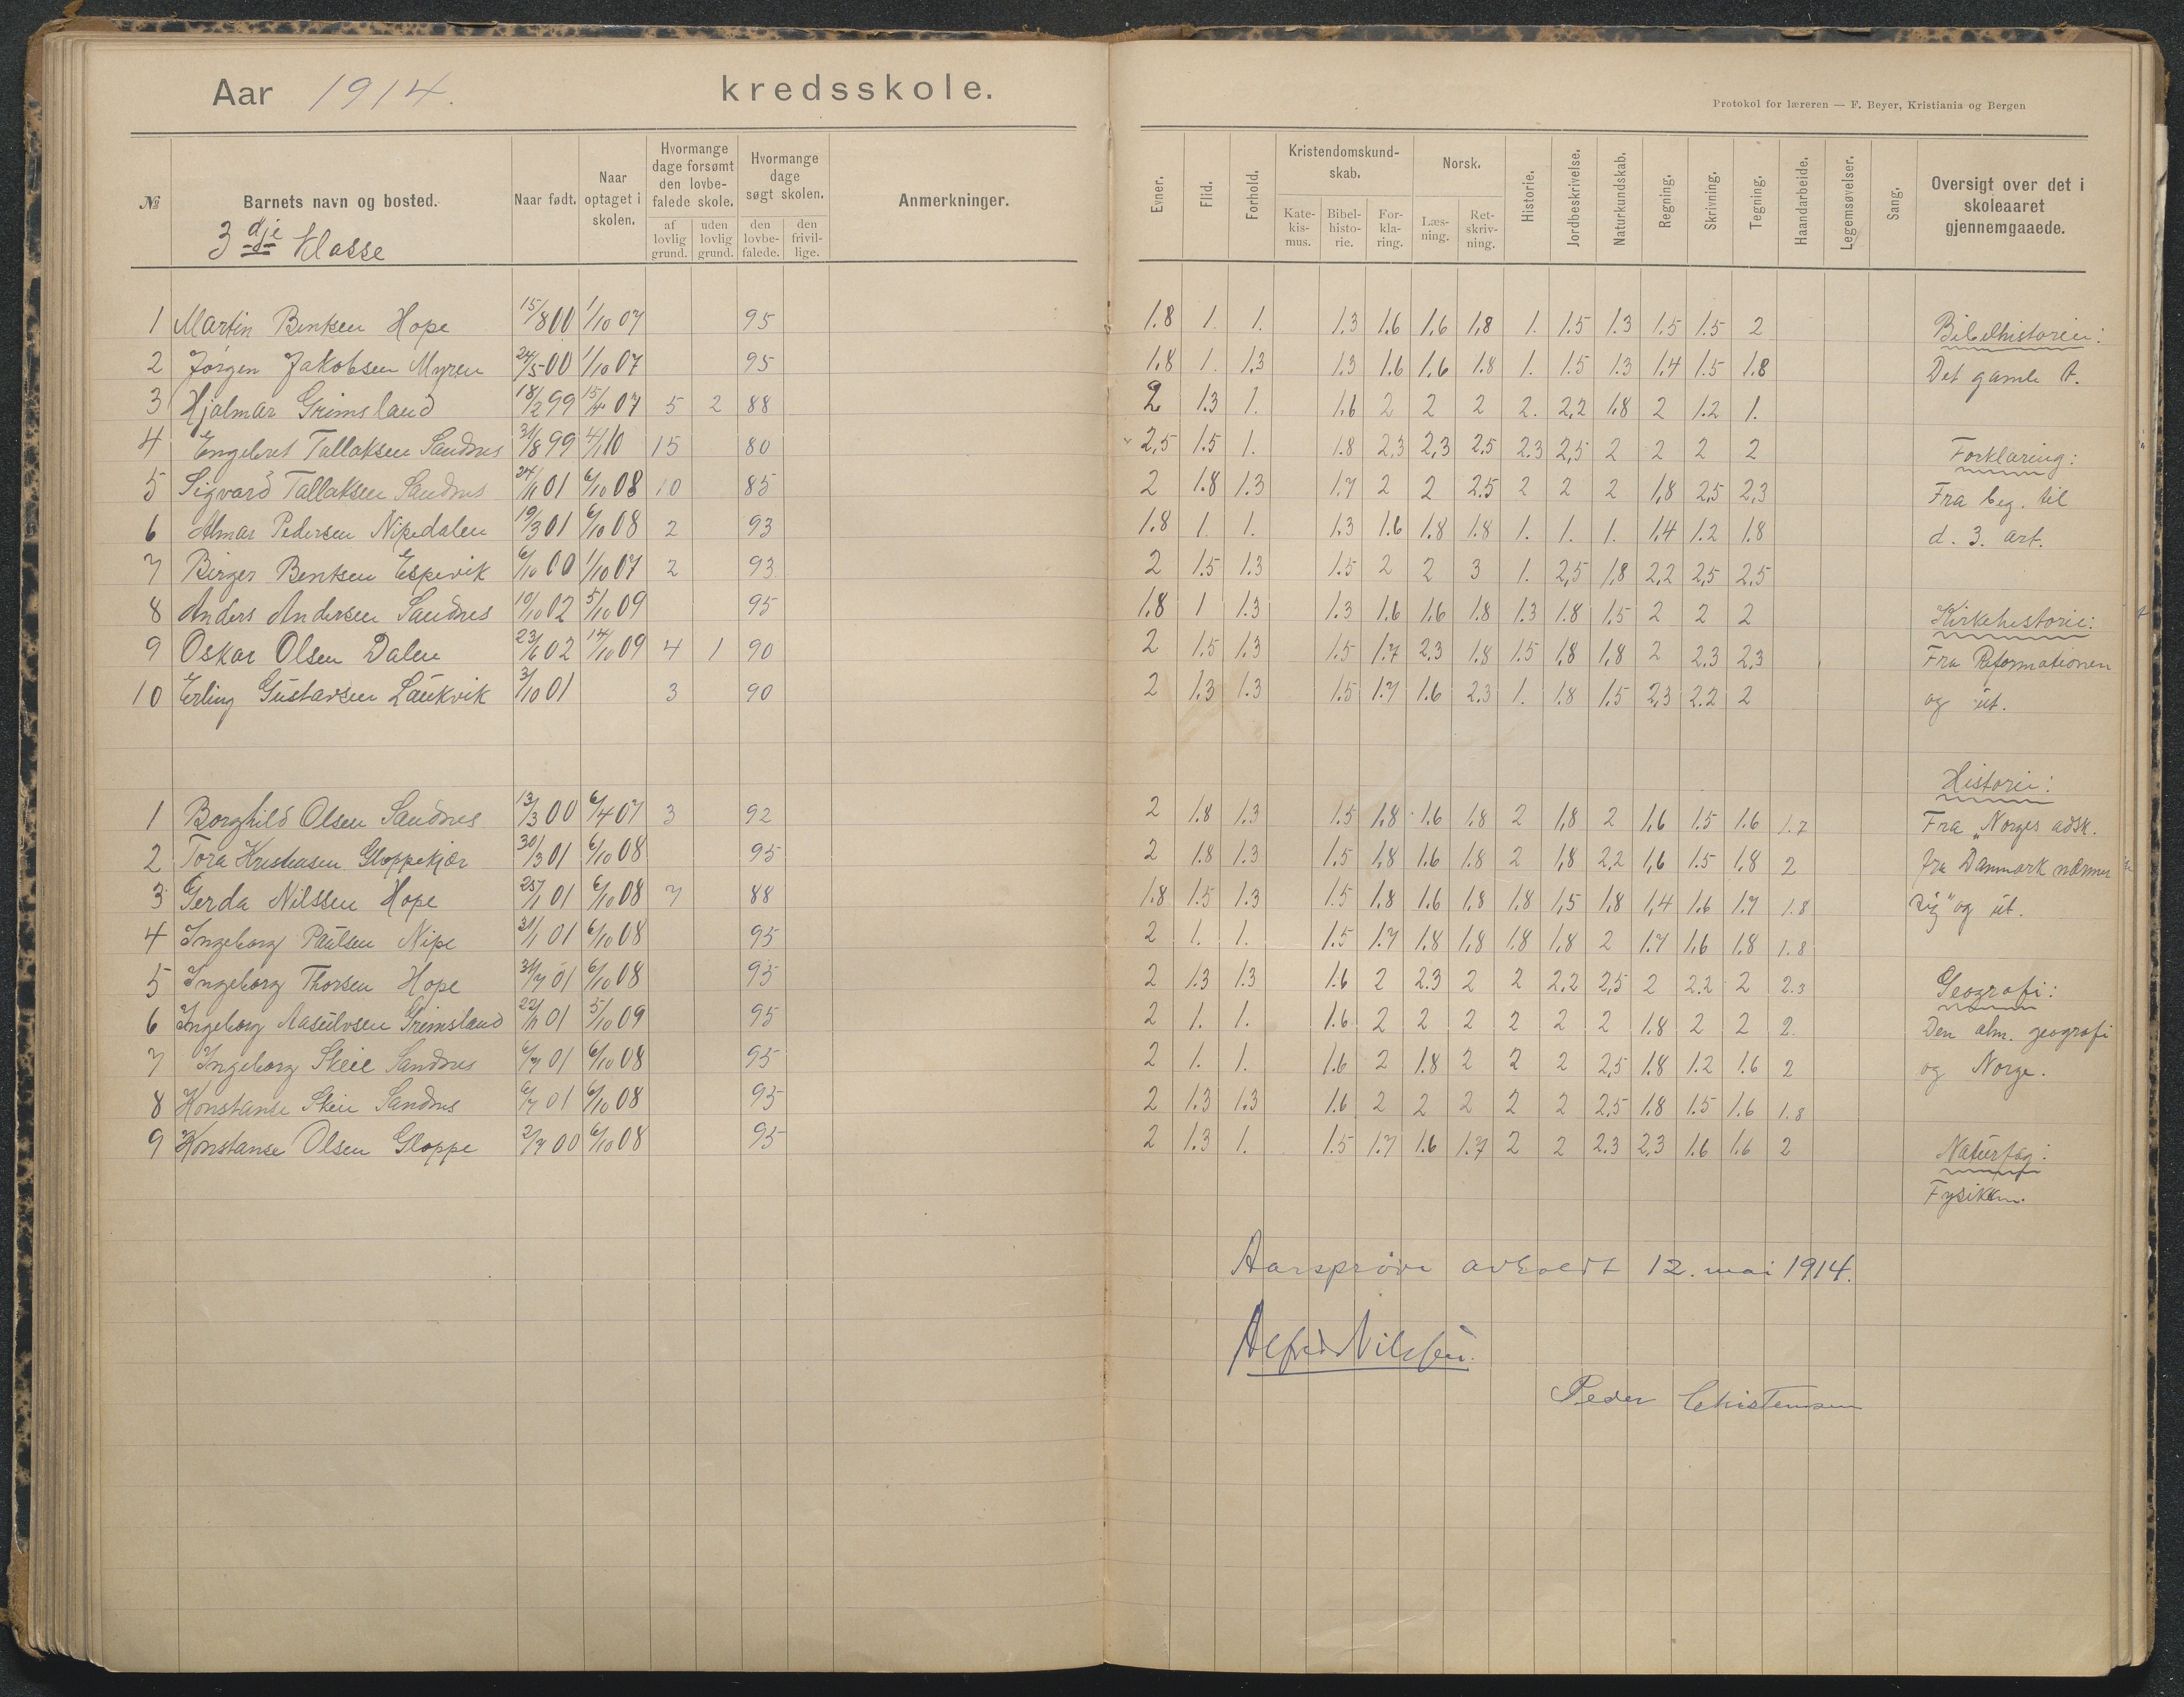 Aar 1914. kredsskole.
Protokol for læreren — F. Beyer, Kristiania og Bergen
№ Barnets navn og bosted. Naar født. Naar optaget i skolen. Hvormange dage forsømt den lovbefalede skole. af lovlig grund. uden lovlig grund. Hvormange dage søgt skolen. den lovbefalede. den frivillige. Anmerkninger.
Evner. Flid. Forhold. Kristendomskundskab. Katekismus. Bibelhistorie. Forklaring. Norsk. Læsning. Retskrivning. Historie. Jordbeskrivelse. Naturkundskab. Regning. Skrivning. Tegning. Haandarbeide. Legemsøvelser. Sang. Oversigt over det i skoleaaret gjennemgaaede.
3dje Klasse
1 Martin Bentsen Hope 15/8 00 1/10 07 95 1.8 1. 1. 1.3 1.6 1.6 1.8 1. 1.5 1.3 1.5 1.5 2 Bibelhistorie:
2 Jørgen Jakobsen Myren 24/5 00 1/10 07 95 1.8 1. 1.3 1.3 1.6 1.6 1.8 1. 1.5 1.3 1.4 1.5 1.8 Det gamle t.
3 Hjalmar Grimsland 18/2 99 15/4 07 5 2 88 2 1.3 1. 1.6 2 2 2 2. 2,2 1.8 2 1.2 1.
4 Engebret Tallaksen Sandnes 31/8 99 4/10 15 80 2,5 1.5 1. 1.8 2,3 2,3 2.5 2.3 2,5 2 2 2 2 Forklaring:
5 Sigvard Tallaksen Sandnes 24/11 01 6/10 08 10 85 2 1.8 1.3 1.7 2 2 2.5 2 2 2 1,8 2,5 2,3 Fra beg. til
6 Almar Pedersen Nipedalen 19/3 01 6/10 08 2 93 1.8 1. 1. 1.3 1.6 1.8 1.8 1. 1. 1. 1.4 1.2 1.8 d. 3. art.
7 Birger Bentsen Espevik 6/10 00 1/10 07 2 93 2 1.5 1.3 1.5 2 2 3 1. 2,5 1,8 2,2 2,5 2,5
8 Anders Andersen Sandnes 10/10 02 5/10 09 95 1,8 1 1.3 1.3 1.6 1.6 1.8 1.3 1.8 1.5 2 2 2 Kirkehistorie:
9 Oskar Olsen Dalen 23/6 02 14/10 09 4 1 90 2 1.5 1.3 1.5 1.7 2.3 1.8 1.5 1,8 1,8 2 2.3 2,3 Fra Reformationen
10 Erling Gustavsen Laukvik 3/10 01 3 90 2 1.3 1.3 1.5 1.7 1.6 2.3 1. 1.8 1.5 2,3 2.2 2 og ut.
Historie:
1 Borghild Olsen Sandnes 13/3 00 6/4 07 3 92 2 1.8 1.3 1.5 1.8 1.6 1.8 2 1,8 2 1,6 1.5 1.6 1.7 Fra „Norges adsk.
2 Tora Kristensen Gloppekjær 30/3 01 6/10 08 95 2 1.8 1.3 1.5 1,8 1.6 1.8 2 1,8 2,2 1,6 1.5 1,8 2 fra Danmark nærmer
3 Gerda Nilssen Hope 25/1 01 6/10 08 7 88 1.8 1.5 1.3 1.5 1.8 1.6 1.8 1.8 1,5 1.8 1,4 1.6 1.7 1.8 sig" og ut.
4 Ingeborg Paulsen Nipe 31/1 01 6/10 08 95 2 1. 1. 1.5 1.7 1.8 1.8 1.8 1,8 2 1.7 1,6 1.8 1.8
5 Ingeborg Thorsen Hope 31/7 01 6/10 08 95 2 1.3 1.3 1.6 2 2.3 2 2 2.2 2,5 2 2.2 2 2.3 Geografi:
6 Ingeborg Aasulvsen Grimsland 22/11 01 5/10 09 95 2 1. 1. 1.6 2 2 2 2 2 2 1.8 2 2 2. Den alm. geografi
7 Ingeborg Skeie Sandnes 6/7 01 6/10 08 95 2 1. 1. 1.6 2 1.8 2 2 2 2,5 1.8 1.2 1.6 2 og Norge.
8 Konstanse Skeie Sandnes 6/7 01 6/10 08 95 2 1.3 1.3 1.6 2 2 2 2 2 2,5 1.8 1.5 1.6 1.8
9 Konstanse Olsen Gloppe 2/7 00 6/10 08 95 2 1.3 1. 1.5 1.7 1.6 1.7 2 2 2.3 2,3 1.6 1.6 2 Naturfag:
Fysikken.
Aarsprøve avholdt 12. mai 1914.
Alfred Nilssen.
Peder Christensen